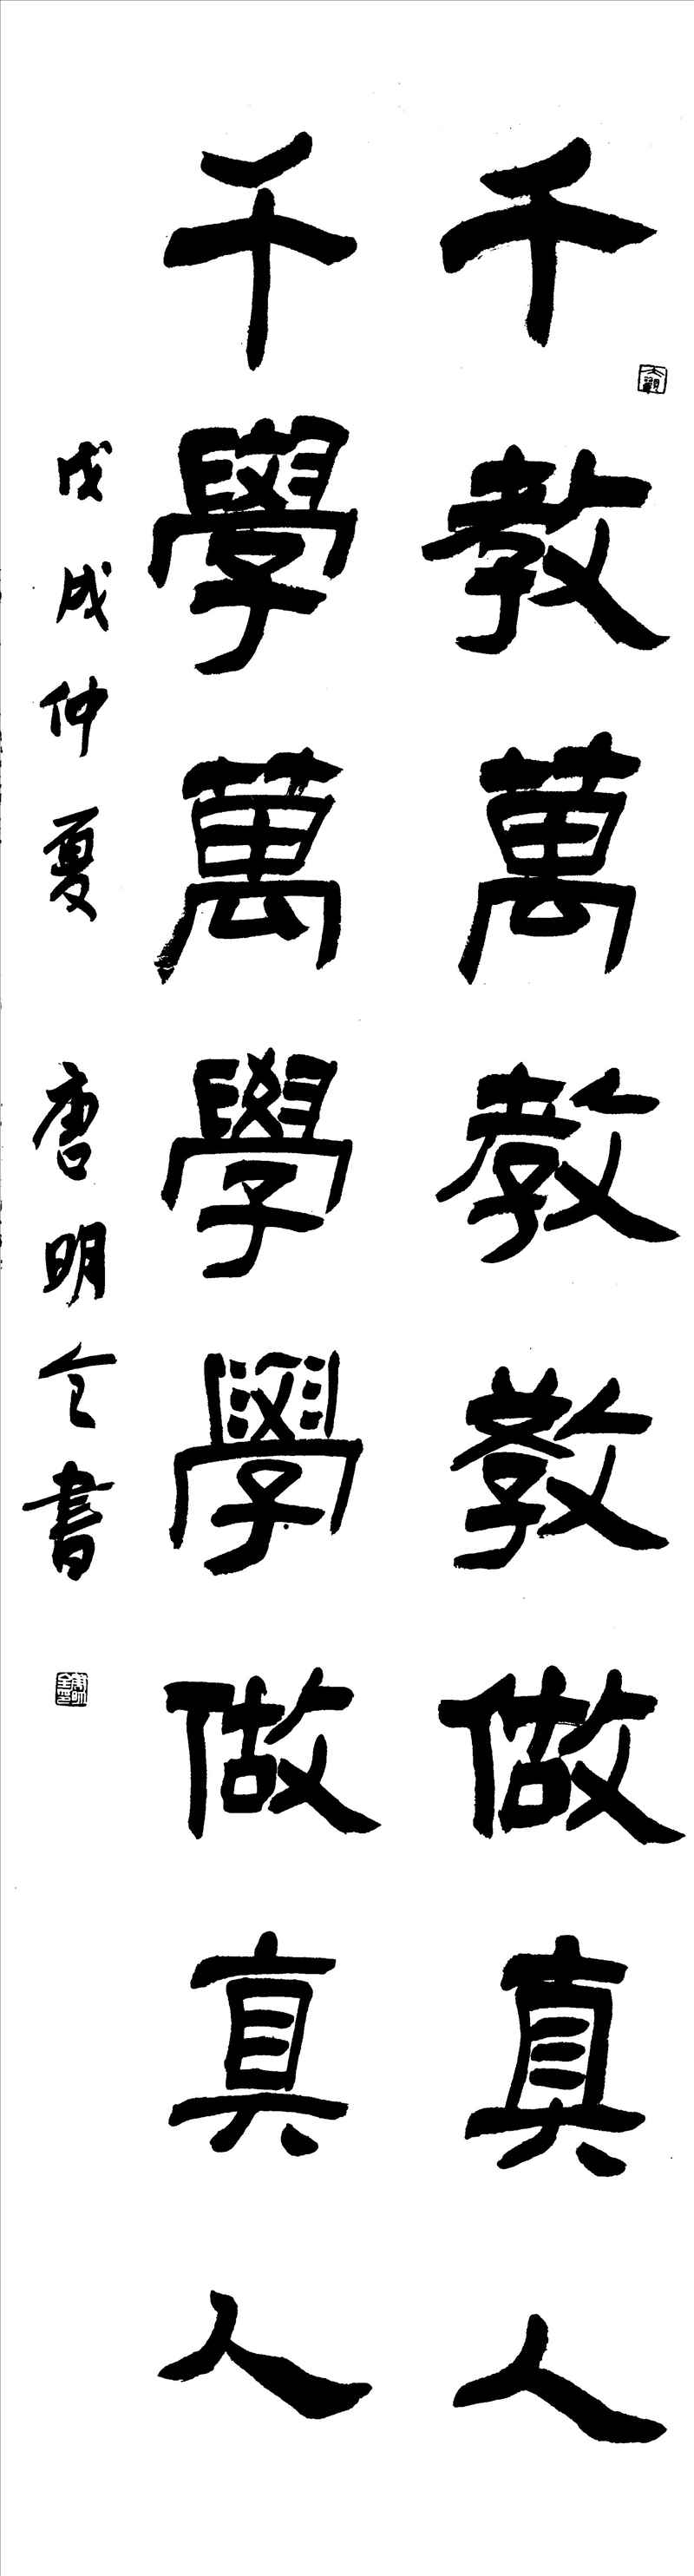 千教萬教教做真人
千學萬學學做真人
戊戌仲夏 唐明仝書